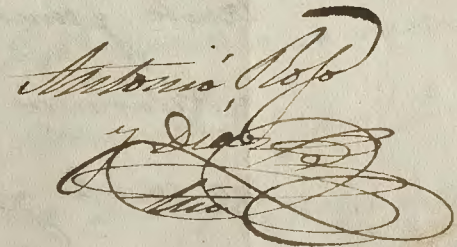 Antonio Roso
y Diaz